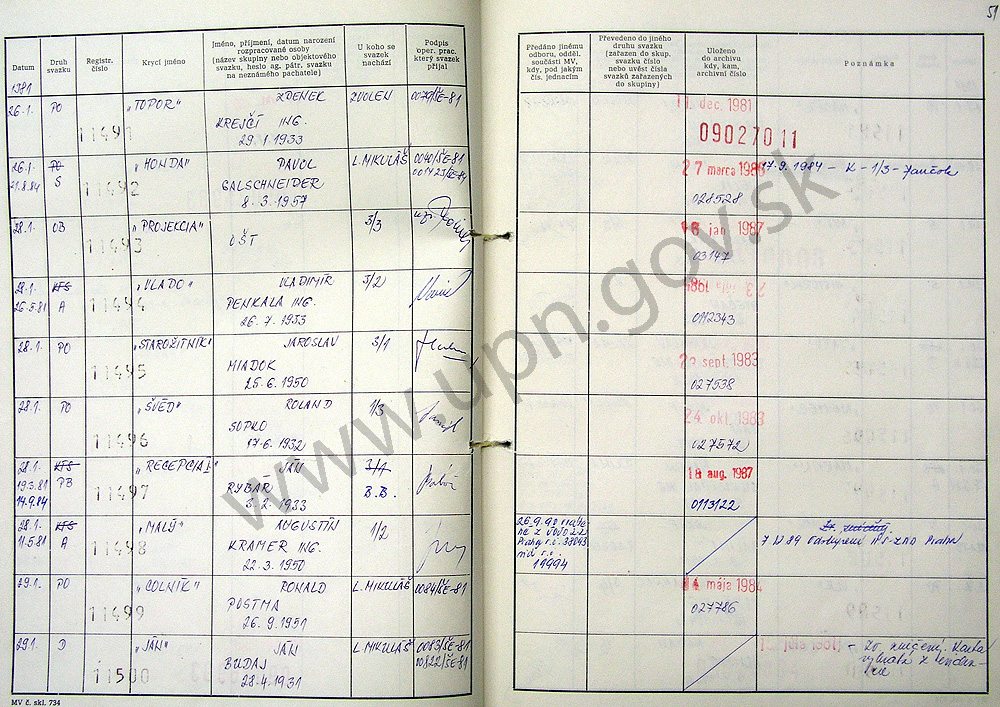 51
Datum
Druh svazku
Registr. číslo
Krycí jméno
Jméno, příjmení, datum narození
rozpracované osoby
(název skupiny nebo objektového
svazku, heslo ag. pátr. svazku
na neznámého pachatele)
U koho se
svazek
nachází
Podpis
oper. prac.
který svazek
přijal
Předáno jinému
odboru, odděl.
součásti MV,
kdy, pod jakým
čís. jednacím
Převedeno do jiného
druhu svazku
(zařazen do skup.
svazku číslo
nebo uvést čísla
svazků zařazených
do skupiny)
Uloženo
do archivu
kdy, kam,
archivní číslo
Poznámka
1981
26.1. PO 11491 „TOPOR" ZDENEK ZVOLEN 0079/ŠE-81
KREJČÍ ING.
29.1.1933
11. dec. 1981
090270 11
26.1. PO 11492 „HONDA" PAVOL L. MIKULÁŠ 0040/ŠE-81
21.8.84 S GALSCHNEIDER 001423/ŠE-84
8.3.1957
27 marca 1986 17.9.1984 - K - 1/3 -
028528
28.1. OB 11493 „PROJEKCIA" 3/3
OŠT
16 jan. 1987
03147
28.1. KTS 11494 „VLADO" VLADIMÍR 3/2
26.5.81 A PENKALA ING.
26.7.1933
0112343
28.1. PO 11495 „STAROŽITNÍK" JAROSLAV 3/1
MIADOK
25.6.1950
sept. 1983
027538
28.1. PO 11496 „ŠVÉD" ROLAND 1/3
SOPKO
17.6.1932
24. okt. 1983
027572
28.1. KTS 11497 „RECEPCIA" JÁN 3/1
19.3.81 PB RYBÁR B.B.
14.9.84 3.2.1933
18 aug. 1987
0113122
28.1. KTS 11498 „MALÝ" AUGUSTÍN 1/2
11.5.81 A KRAMER ING.
22.3.1950
26.9.90
Praha
19994
Praha
29.1. PO 11499 „COLNÍK" RONALD L. MIKULÁŠ 0084/ŠE-81
POSTMA
26.9.1951
14 mája 1984
027786
29.1. D 11500 „JÁN" JÁN L. MIKULÁŠ 0083/ŠE-81
BUDAJ 00122/ŠE-81
28.4.1931
- Zv. zničený. Karta
vybratá z
MV č. skl. 734
www.upn.gov.sk